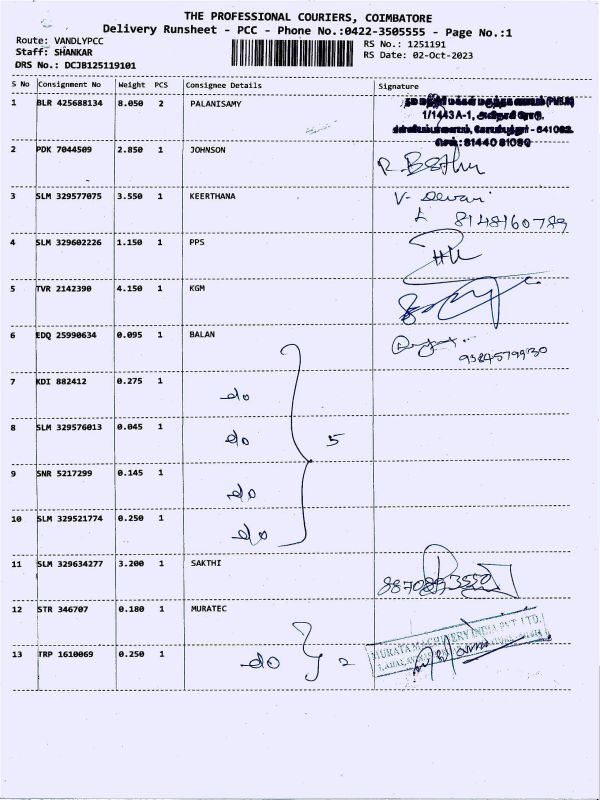 THE PROFESSIONAL COURIERS, COIMBATORE
Delivery Runsheet - PCC - Phone No.:0422-3505555 - Page No.:1
Route: VANDLYPCC
Staff: SHANKAR
DRS No.: DCJB125119101
RS No.: 1251191
RS Date: 02-Oct-2023
S No Consignment No Weight PCS Consignee Details Signature
1 BLR 425688134 8.050 2 PALANISAMY
1/1443 A-1,
- 641062.
2 PDK 7044509 2.850 1 JOHNSON
3 SLM 329577075 3.550 1 KEERTHANA
8148160789
4 SLM 329602226 1.150 1 PPS
5 TVR 2142390 4.150 1 KGM
6 EDQ 25990634 0.095 1 BALAN
9384579930
7 KDI 882412 0.275 1 do
8 SLM 329576013 0.045 1 do 5
9 SNR 5217299 0.145 1 do
10 SLM 329521774 0.250 1 do
11 SLM 329634277 3.200 1 SAKTHI
12 STR 346707 0.180 1 MURATEC
MURATA MACHINERY INDIA PVT. LTD.
13 TRP 1610069 0.250 1 do 2